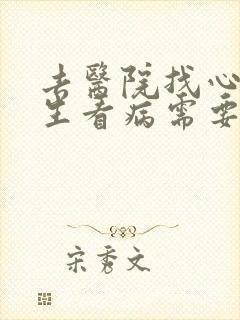 去醫院找心
生看病需要
宋秀文